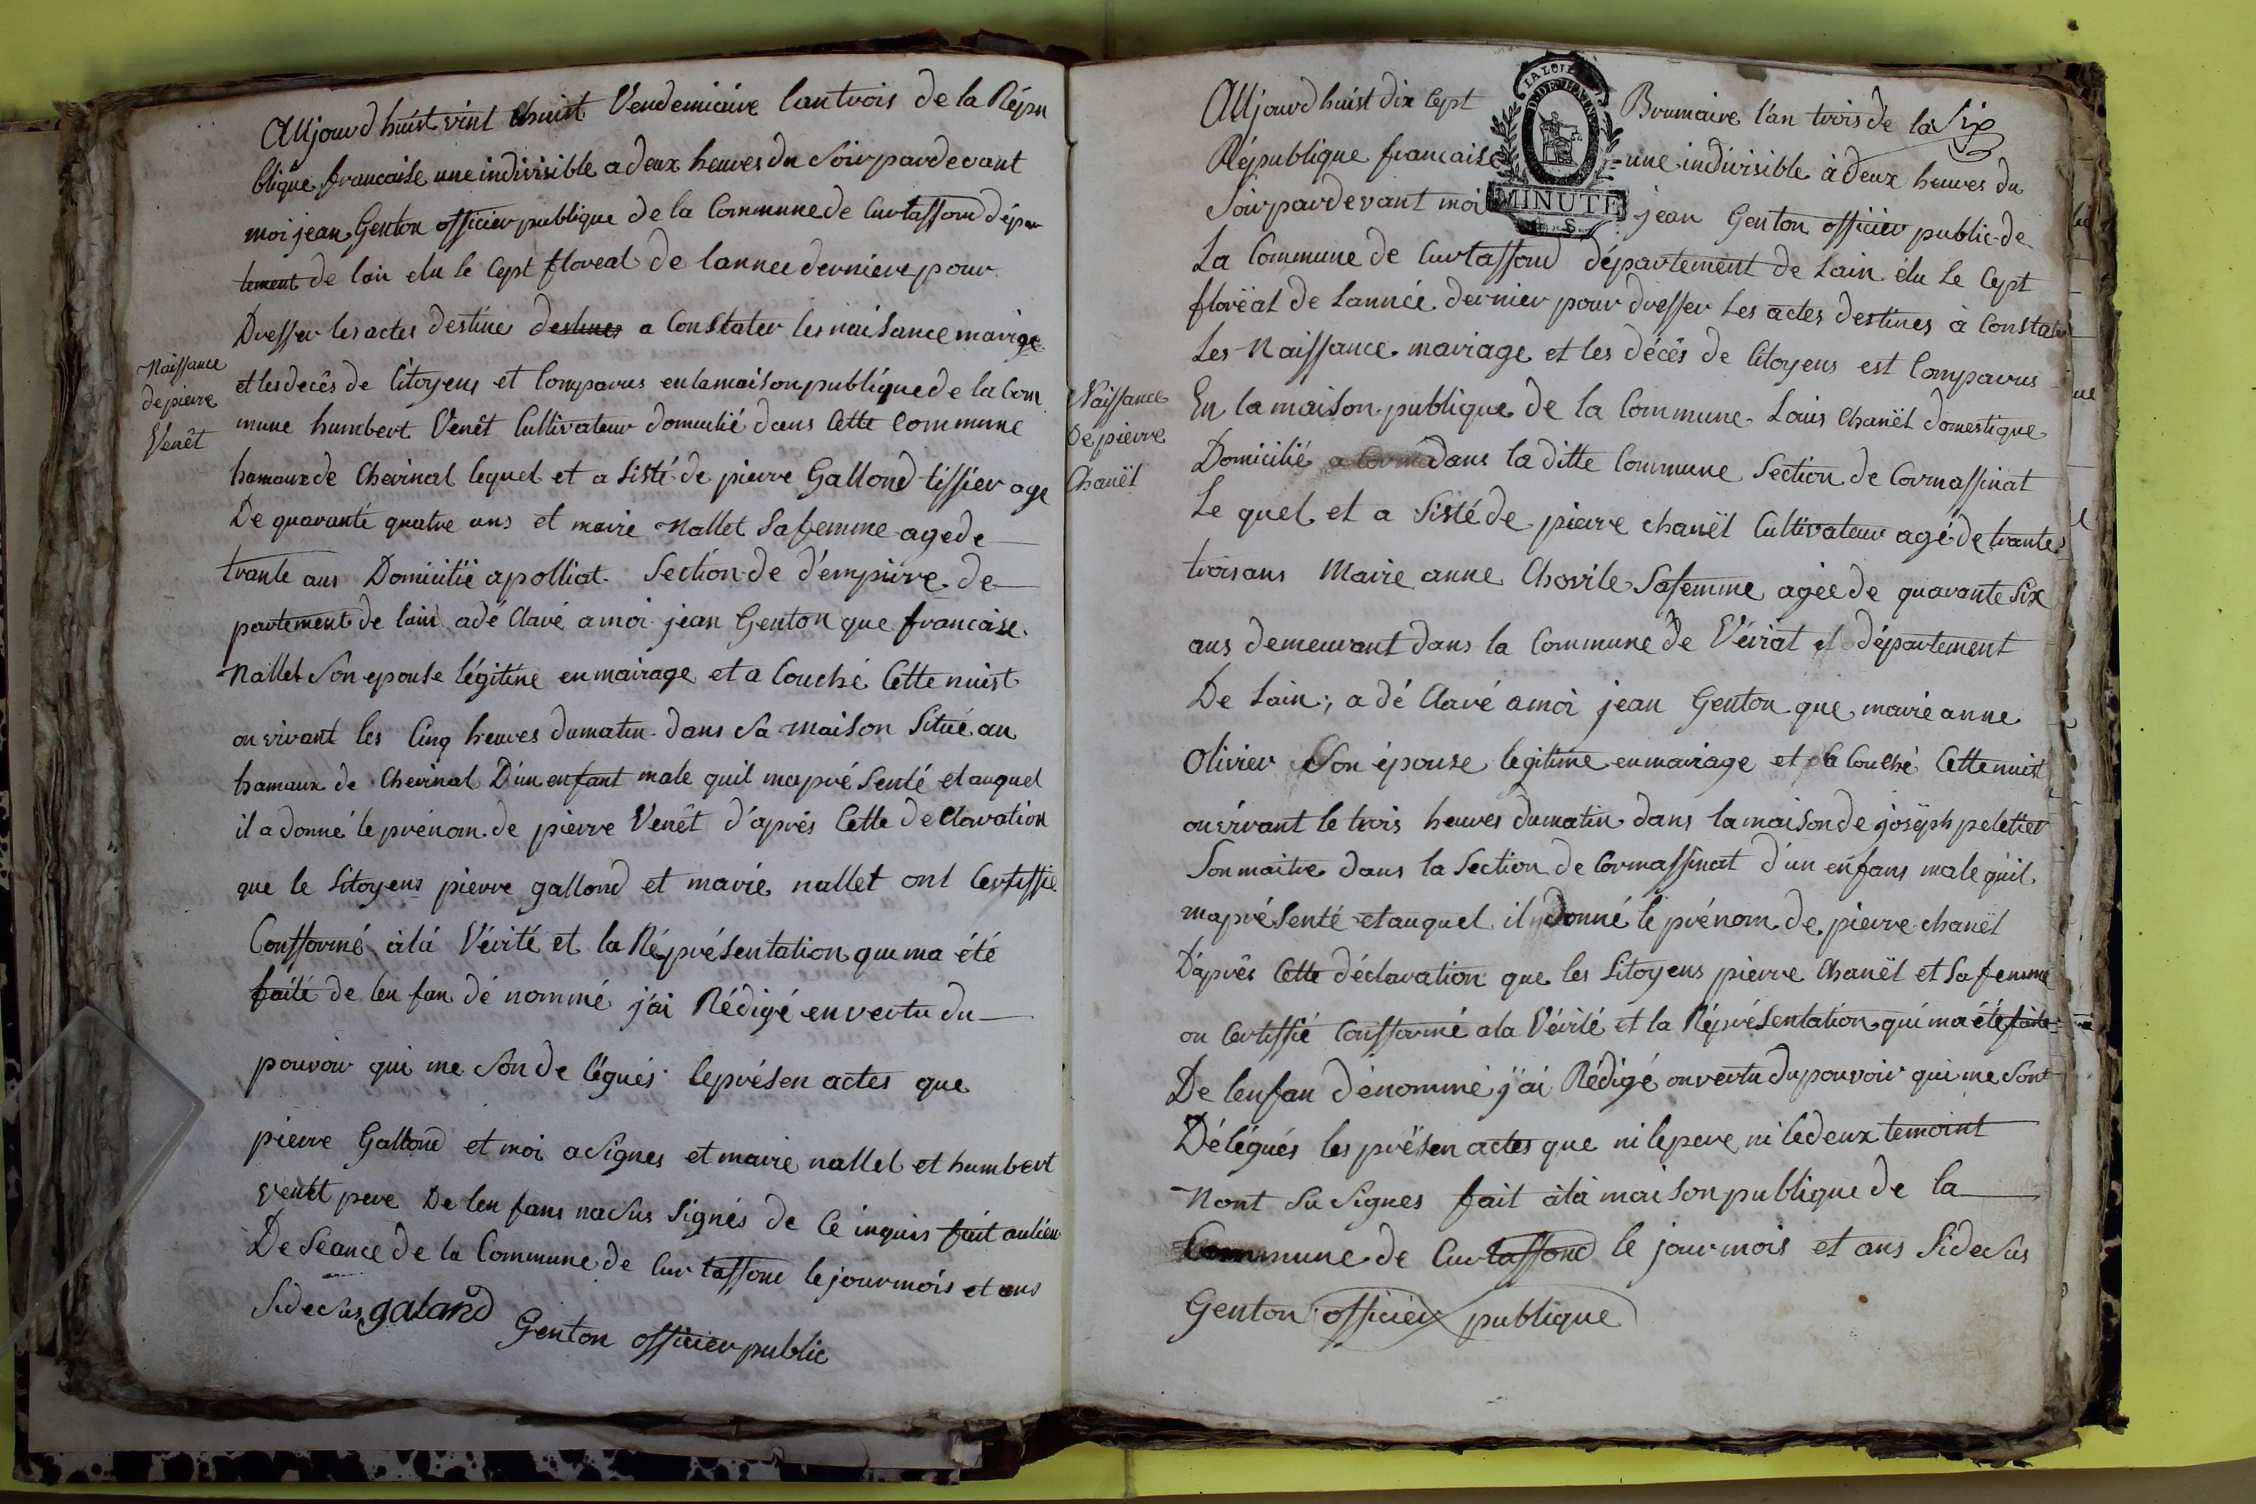 Aujourd huist vint Ehuist Vendemiaire lan trois de la Répu
blique francaise une indivisible a deux heures du Soir pardevant
moi jean Genton officier publique de la Commune de Curtaffond dépar
tement de lain elu le Cept floreal de lannee derniere pour
Dresser les actes destine destines a Constater les naisance marige
et les decês de Citoyens et Comparus en la maison publique de la Com
mune humbert Venêt Cultivateur domicilié dans Cette Commune
hamaux de Chevinal lequel et a Sisté de pierre Gallond tissier age
De quarante quatre ans et marie Nallet Sa femme agede
trante ans Domicilié apolliat Section de d'empirre de
partement de lain adé Claré a moi jean Genton que francaise
Nallet Son epouse légitine en mairage et a Couché Cette nuist
en vivant les Cinq heures dumatin dans Sa maison Situé au
hamaux de Chevinal D'un enfant male quil mapré Senté et auquel
il a donné le prénom de pierre Venêt d'aprés Cette de Claration
que le Sitoyens pierre gallond et marie nallet ont Certiffié
Confformé àlà Vérité et la Réprésentation que ma été
faite de len fan dé nommé j'ai Rédigé en vertu du
pouvoir qui me Son de légués leprésen actes que
pierre Gallond et moi a Signes et marie nallet et humbert
venêt pere De len fans na Sus Signés de Ce inquis fait aulieu
De Seance de la Commune de Curtaffond le jour mois et ans
Sidesus galand
Genton officier public
Naissance
de pierre
Venêt
Six
Aujourd huist dix Cept Brumaire l'an trois de la
République francaise une indivisible à deux heures du
Soir pardevant moi jean Genton officier public de
LA LOI
MINUTE
La Commune de Curtaffond département de Lain élu Le Cept
floréal de Lannéé dernier pour dresser Les actes destines à Constater
Les Naissance mariage et les décês de Citoyens est Comparus
En la maison publique de la Commune Louis Chanët domestique
Domicilié dans la ditte Commune Section de Cormassinat
Le quel et a Sisté de pierre chanët Cultivateur agé de trante
trois ans Marie anne Chovile Sa femme agéé de quarante Six
ans demeurant dans la Commune de Vériat et département
De Lain, a dé Claré a moi jean Genton que marie anne
Olivier Son épouse legitime en mariage et a Couché Cette nuist
en vivant le trois heures dumatin dans la maison de joséph peletier
Son maitre dans la Section de Cormassinat d'un enfans male quil
mapré Senté et auquel il donné le prénom de pierre chanët
D'aprês Cette déclaration que les Sitoyens pierre Chanët et Sa femme
on Certiffié Confformé ala Vérité et la Réprésentation qui ma été faite
De lenfan dénommé j'ai Rédigé en vertu du pouvoir qui me Sont
Délégués les présen actes que ni lepere ni ledeux temoint
Nont Su Signes fait àlà maison publique de la
Commune de Curtaffond le jour mois et ans Sidesus
Genton officier publique
Naissance
De pierre
Chanët